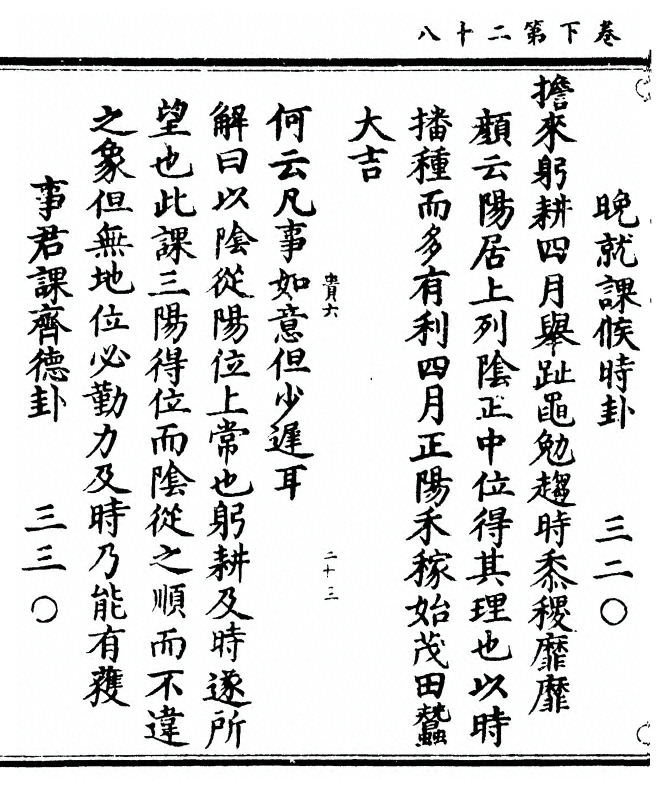 卷下第二十八
晚就課候時卦　三二〇
擔來躬耕四月舉趾黽勉趨時黍稷靡靡
顏云陽居上列陰正中位得其理也以時
播種而多有利四月正陽禾稼始茂田蠶
大吉
貴六
二十三
何云凡事如意但少遲耳
解曰以陰從陽位上常也躬耕及時遂所
望也此課三陽得位而陰從之順而不違
之象但無地位必勤力及時乃能有穫
事君課齊德卦　三三〇